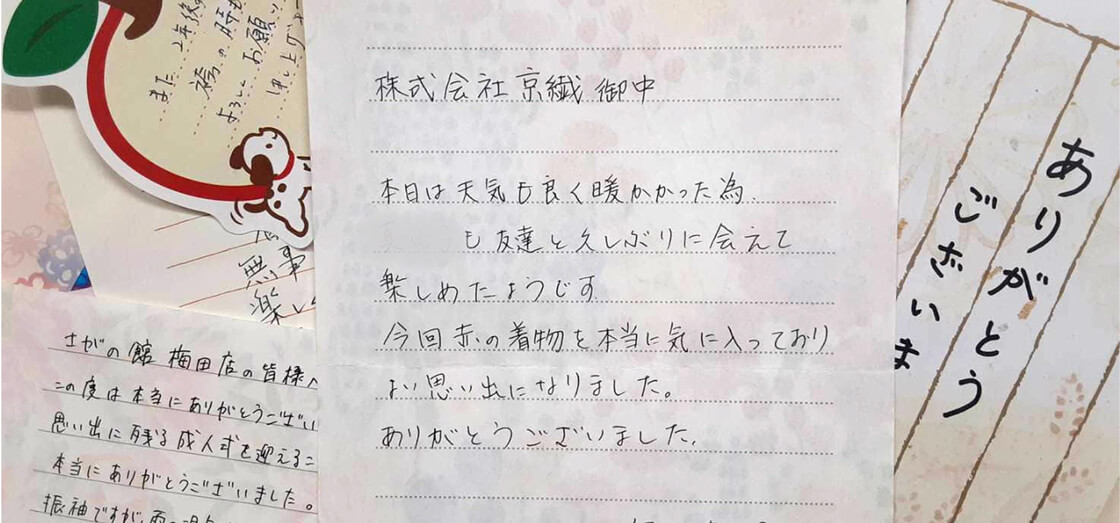 株式会社京繊御中
本日は天気も良く暖かかった為、
も友達と久しぶりに会えて
楽しめたようです
今回赤の着物を本当に気に入っており
よい思い出になりました。
ありがとうございました。
また、2年後の
袴の時も
よろしくお願い
申し上げ
無事
楽し
さがの館 梅田店の皆様へ
この度は本当にありがとうござい
思い出に残る成人式を迎えるこ
本当にありがとうございました。
振袖ですが、
ありがとう
ございま